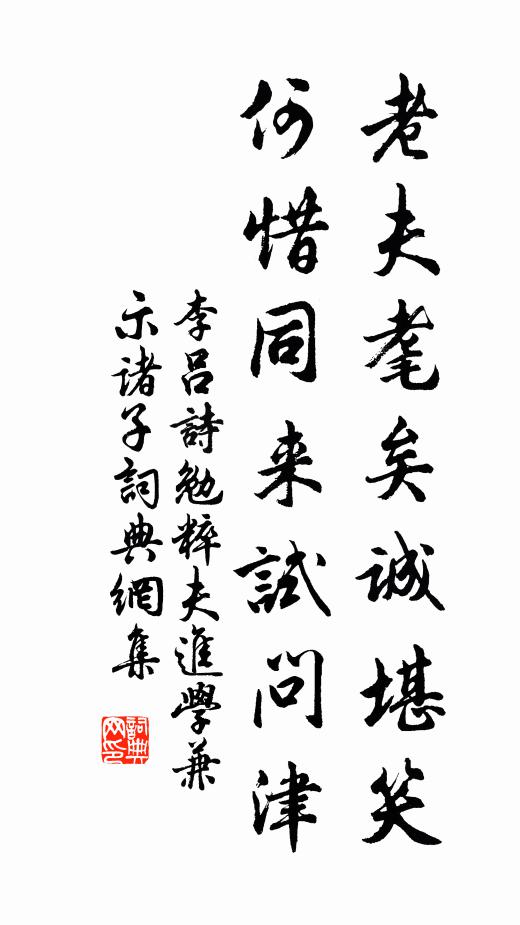 老夫耄矣誠堪笑
何惜同来試問津
李呂詩勉粹夫進學兼
示諸子詞典網集
詞典
网印